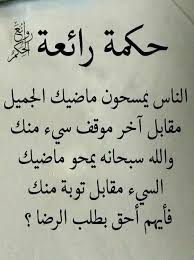 حكمة رائعة
الناس يمسحون ماضيك الجميل
مقابل آخر موقف سيء منك
والله سبحانه يمحو ماضيك
السيء مقابل توبة منك
فأيهم أحق بطلب الرضا ؟